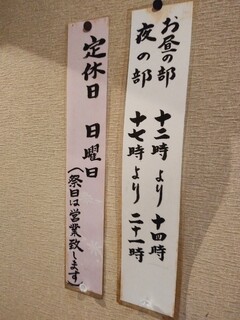 お昼の部 十二時より 十四時
夜の部 十七時より 二十一時
定休日 日曜日
(祭日は営業致します)